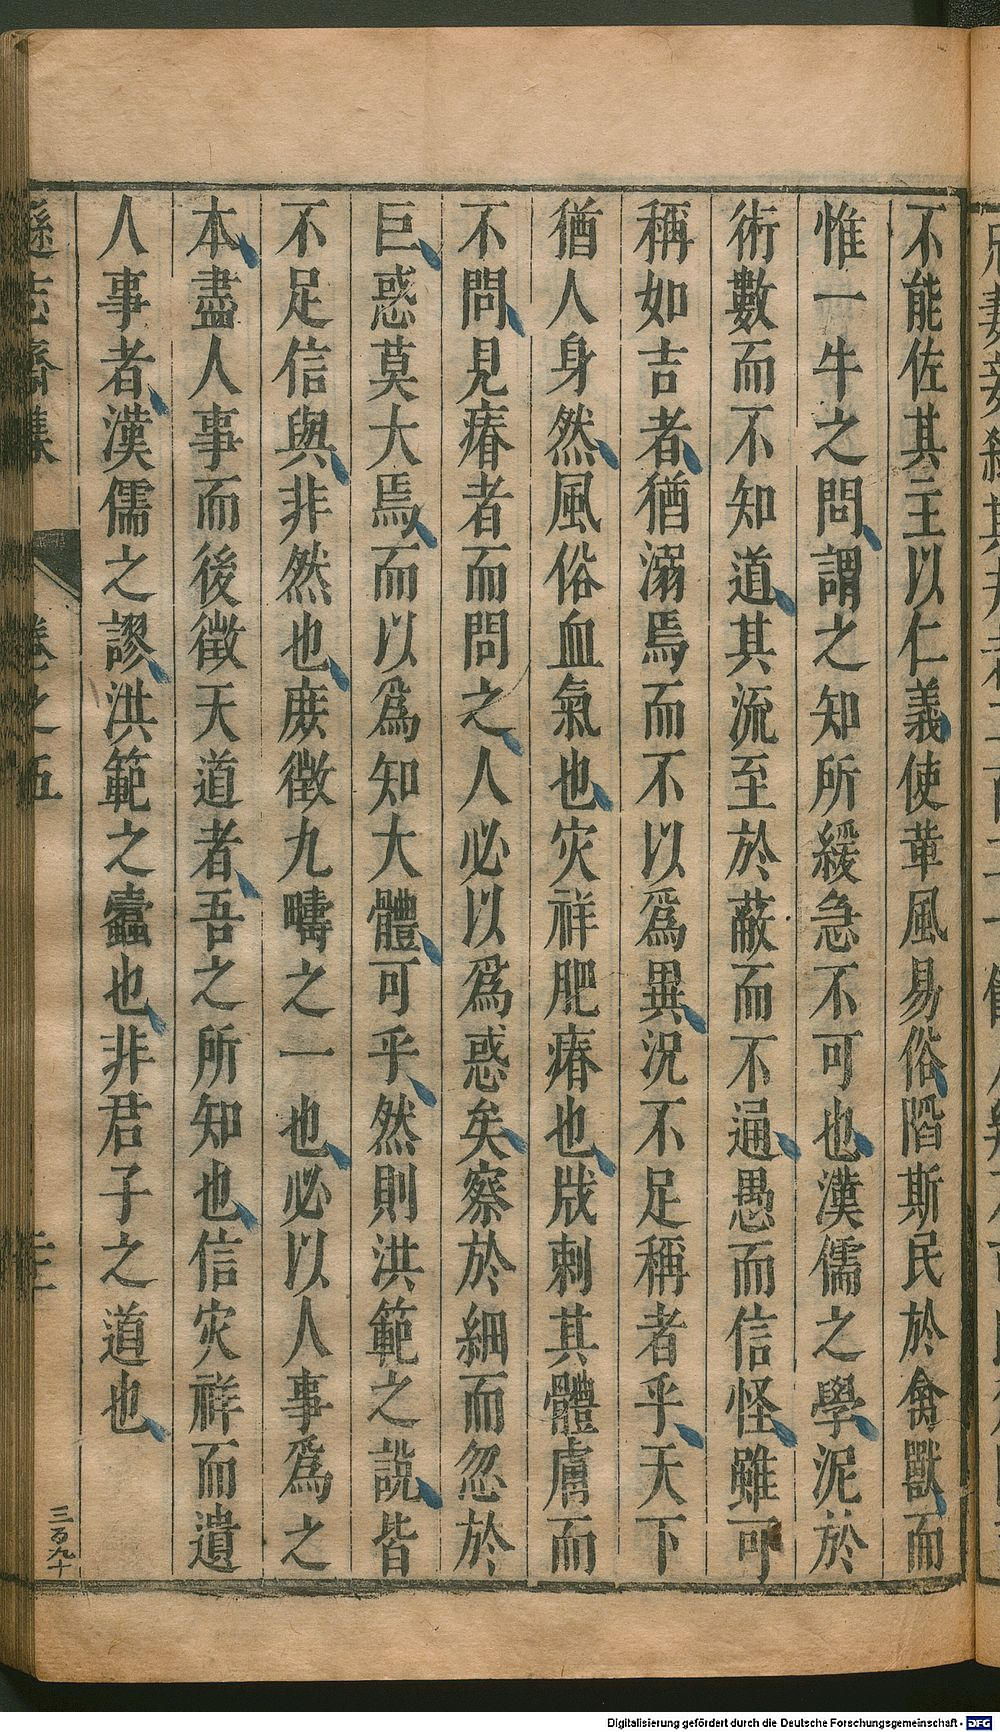 不能佐其主以仁義使革風易俗陷斯民於禽獸而
惟一牛之問謂之知所緩急不可也漢儒之學泥於
術數而不知道其流至於蔽而不通愚而信怪雖可
稱如吉者猶溺焉而不以爲異況不足稱者乎天下
猶人身然風俗血氣也灾祥肥瘠也戕刺其體膚而
不問見瘠者而問之人必以爲惑矣察於細而忽於
巨惑莫大焉而以爲知大體可乎然則洪範之說皆
不足信與非然也庶徵九疇之一也必以人事爲之
本盡人事而後徵天道者吾之所知也信灾祥而遺
人事者漢儒之謬洪範之蠹也非君子之道也
遜志齋集 卷之五
三百九十
Digitalisierung gefördert durch die Deutsche Forschungsgemeinschaft - DFG